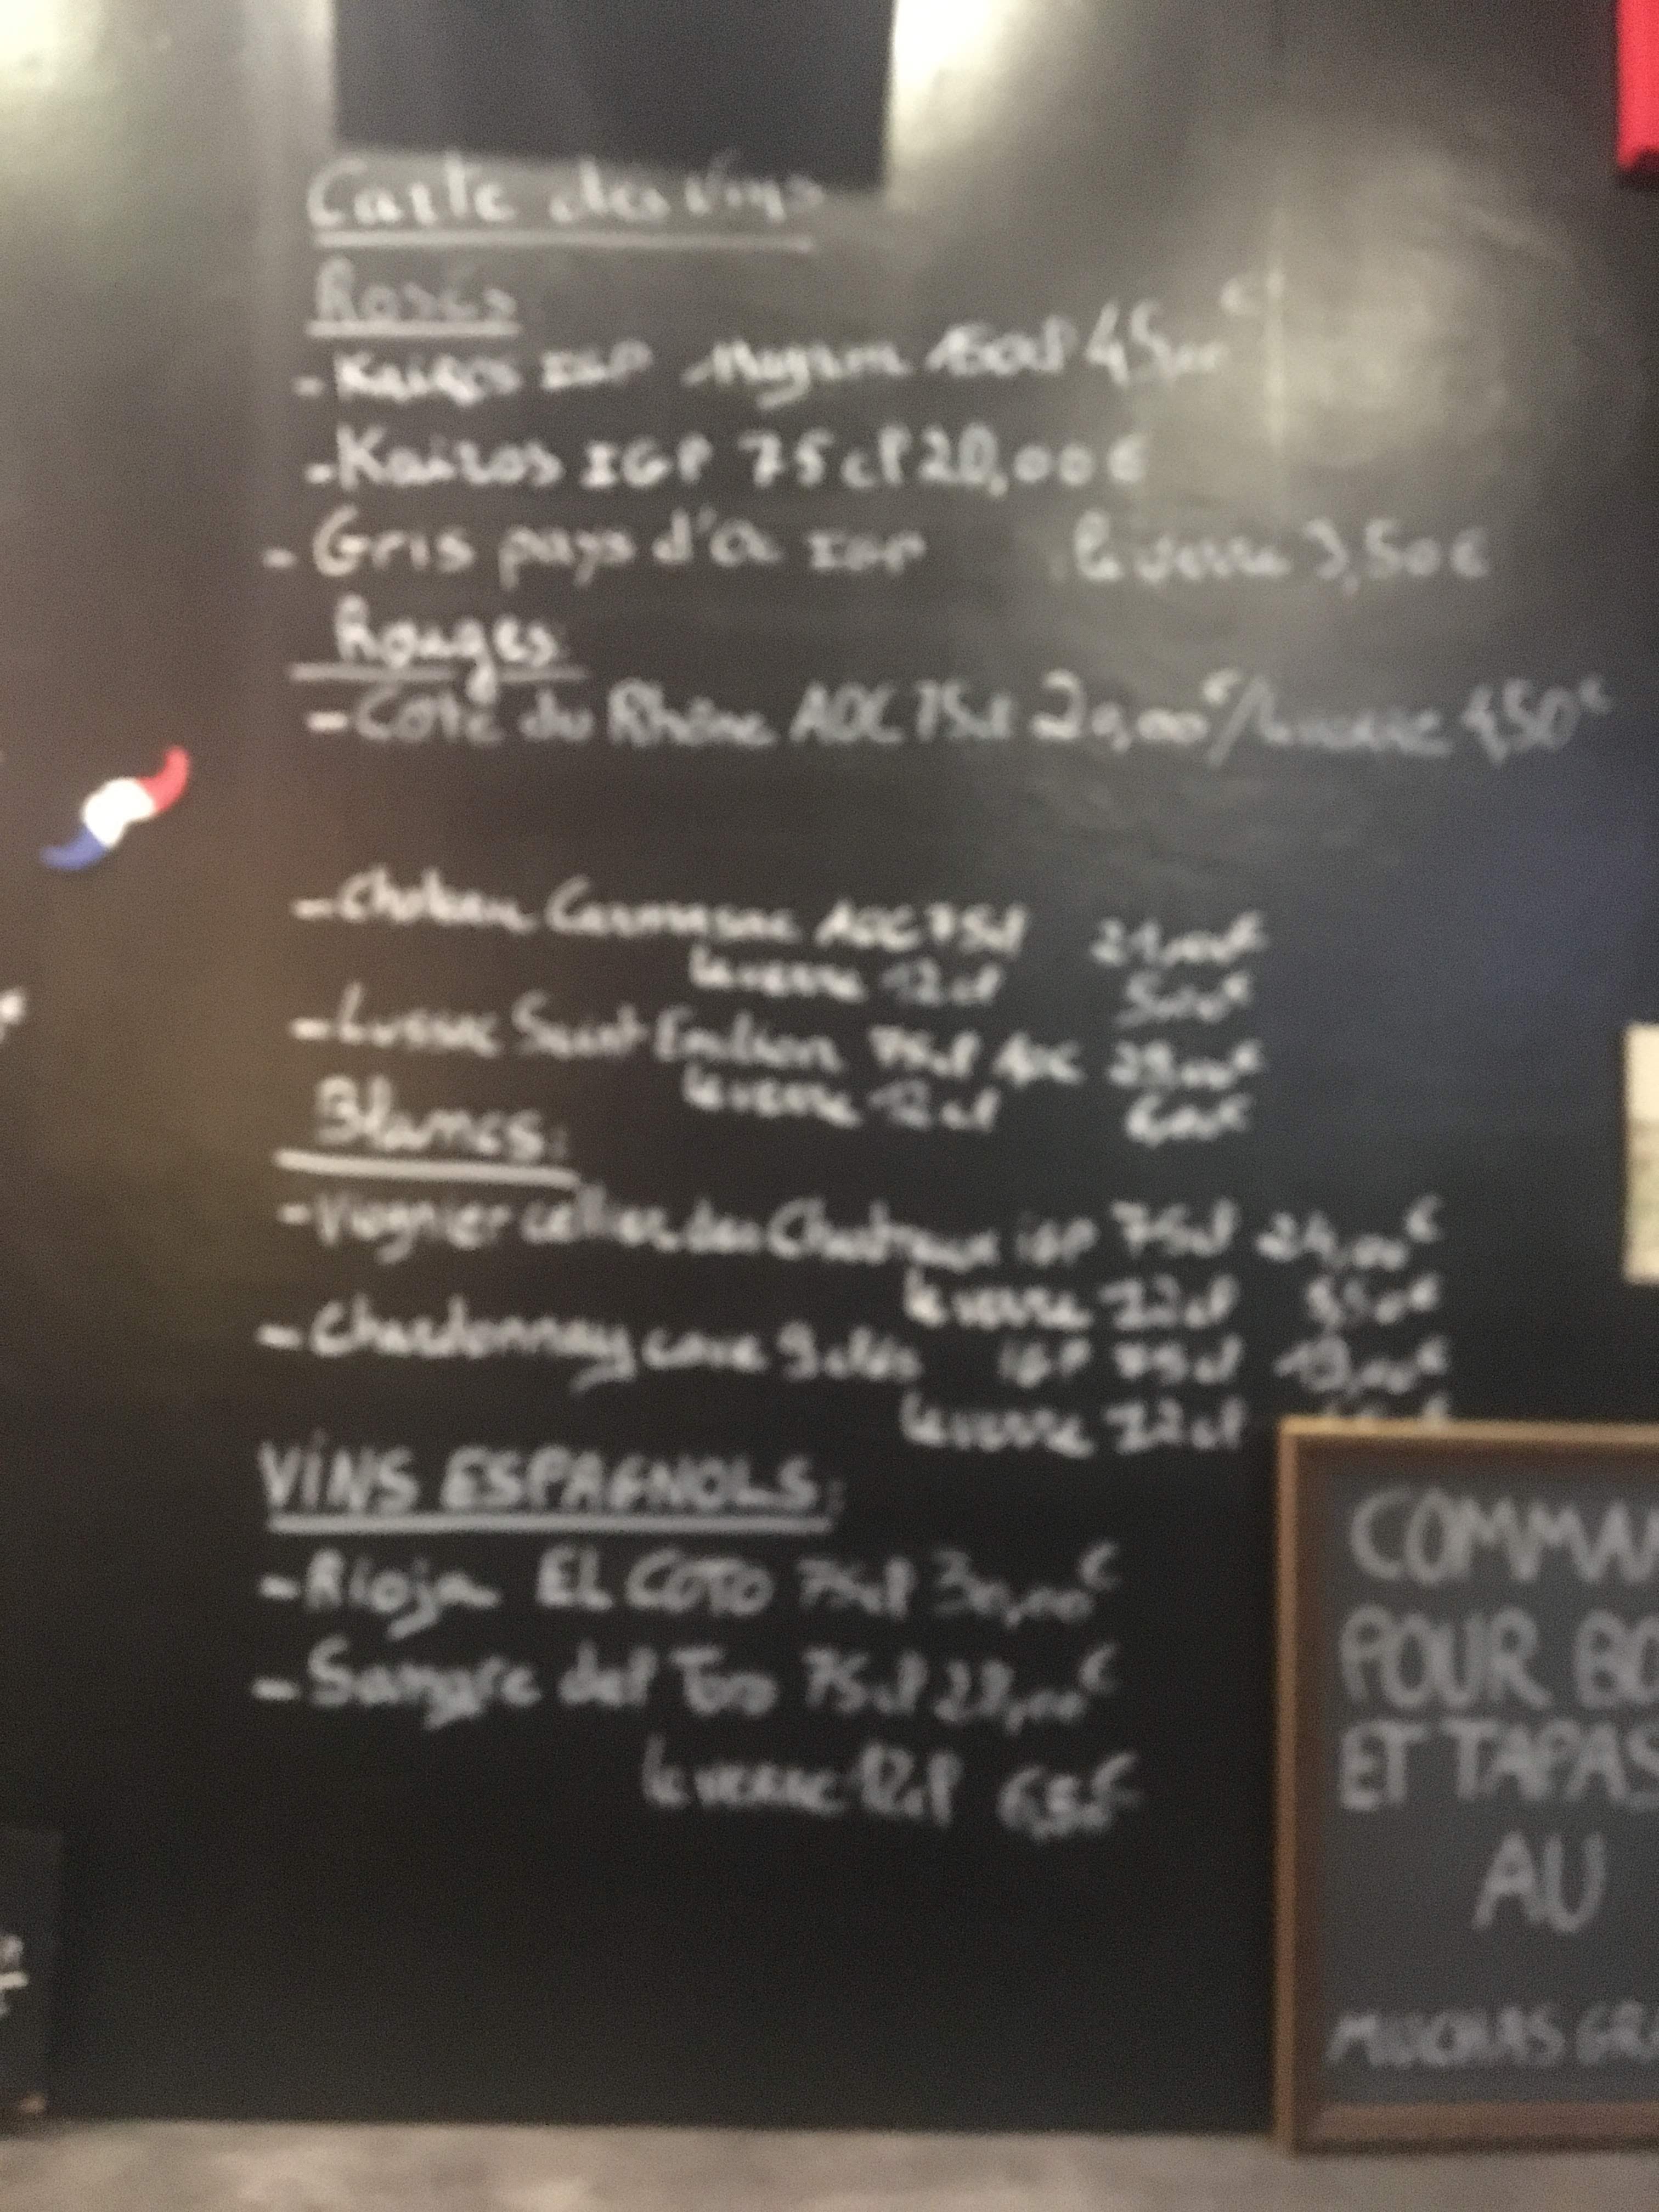 Carte des Vins
Rosés
- Kairos IGP Magnum 150cl 45,00€
- Kairos IGP 75cl 20,00€
- Gris pays d'Oc IGP le verre 3,50€
Rouges:
- Côte du Rhône AOC 75cl 20,00€/le verre 4,50€
- Chateau AOC 75cl 21,00€
le verre 12cl 5,00€
- Lussac Saint Emilion 75cl AOC
le verre 12cl 6,00€
Blancs:
- Viognier cellier des Chartreux IGP 75cl 24,00€
le verre 12cl 5,50€
- Chardonnay cave IGP 75cl 19,00€
le verre 12cl
VINS ESPAGNOLS:
- Rioja EL COTO 75cl 30,00€
- Sangre del Toro 75cl
le verre 12cl
COMMAN
POUR BO
ET TAPAS
AU
MUCHAS GRA